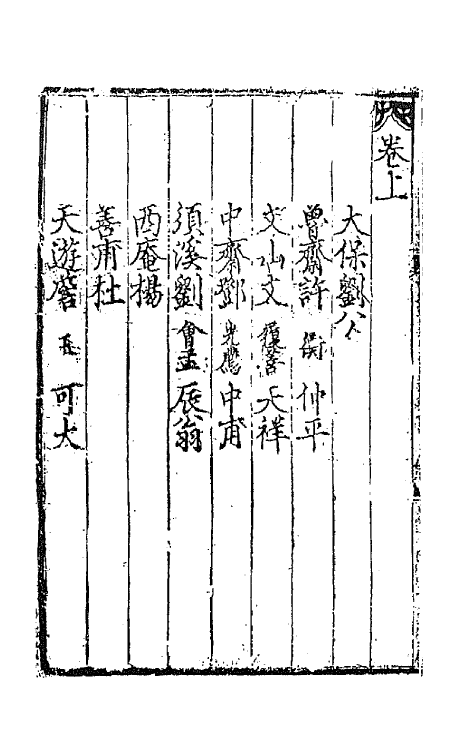 卷上
大保劉公
魯齋許 衡 仲平
文山文 履善 天祥
中齋鄧 光薦 中甫
須溪劉 會孟 辰翁
西庵楊
善甫杜
天遊詹 玉 可大